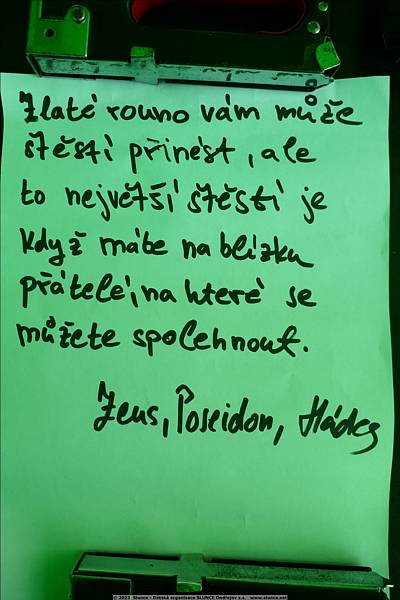 Zlaté rouno vám může
štěstí přinést, ale
to největší štěstí je
když máte na blízku
přátelé, na které se
můžete spolehnout.
Zeus, Poseidon, Hádes
© 2023 Slunce - Dětská organizace SLUNCE Ondřejov z.s. www.slunce.net